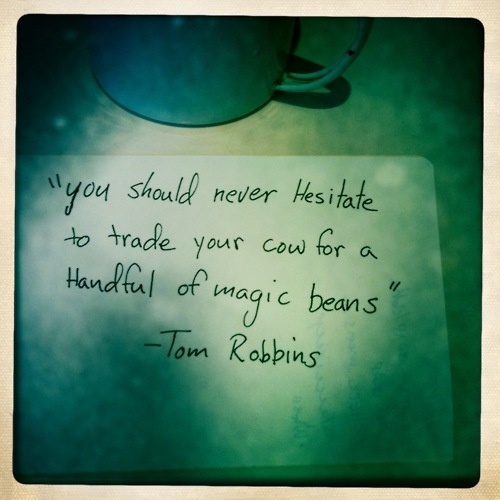 "you should never Hesitate
to trade your cow for a
Handful of magic beans"
-Tom Robbins